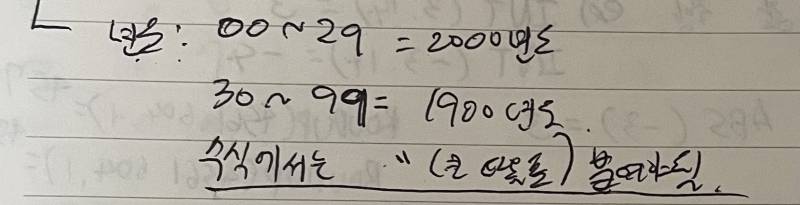 년도: 00~29 = 2000년도
30~99 = 1900년도.
수식에서는 " (큰 따옴표) 붙여야됨.